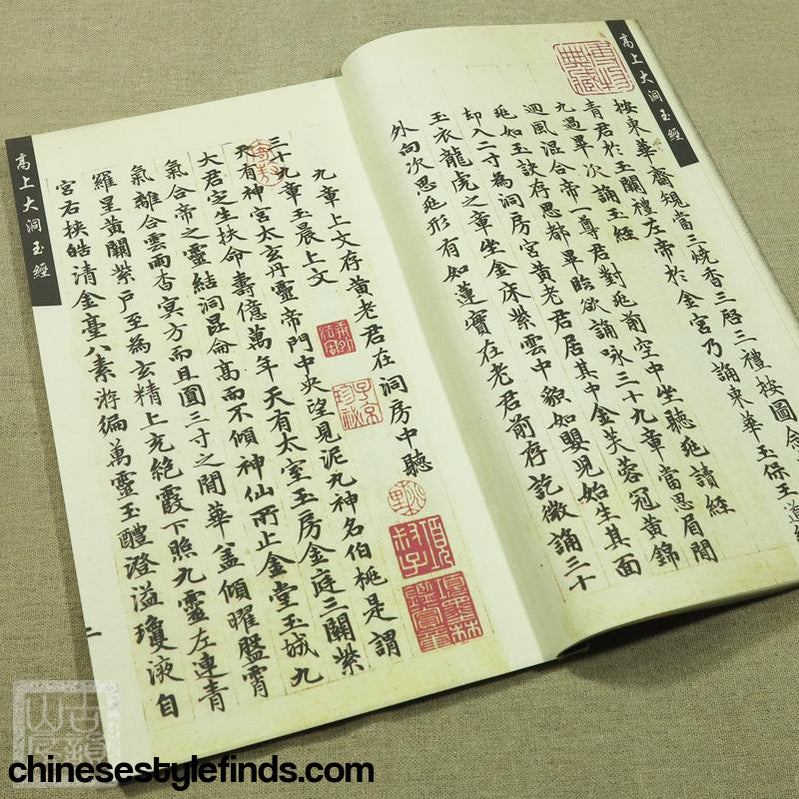 高上大洞玉經
按東華齋規當三燒香三啓三禮按圖念
青君於玉闕禮左帝於金宮乃誦東華玉保王道經
九過畢次誦玉經
迴風混合帝一尊君對兆前空中坐聽兆讀經
兆如玉訣存思都畢臨欲誦詠三十九章當思眉間
却入二寸為洞房宮黃老君居其中金芙蓉冠黃錦
玉衣龍虎之章坐金床紫雲中貌如嬰兒始生其面
外向次思兆形有如蓮實在老君前存訖微誦三十
項叔子
項墨林鑑賞章
子京珍秘
九章上文存黃老君在洞房中聽
三十九章玉晨上文
天有神宮太玄丹靈帝門中央望見泥九神名伯桃是謂
大君定生扶命壽億萬年天有太室玉房金庭三關紫
氣合帝之靈結洞昆侖高而不傾神仙所止金堂玉城九
氣離合雲雨杳冥方而且圓三寸之間華蓋傾曜盤霄
羅呈黃闕紫戶至為玄精上充絕霞下照九靈左連青
宮右挾皓清金臺八素游徧萬靈玉醴澄溢瓊液自
高上大洞玉經
二
chinesestylefinds.com